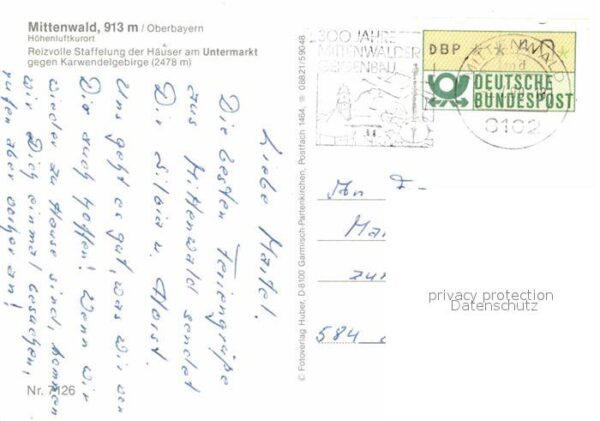 Mittenwald, 913 m / Oberbayern
Höhenluftkurort
Reizvolle Staffelung der Häuser am Untermarkt
gegen Karwendelgebirge (2478 m)
Liebe
Die besten Feriengrüße
aus Mittenwald sendet
Dir Silvia u. Horst.
Uns geht es gut, was wir von
Dir auch hoffen! Wenn wir
wieder zu Hause sind, kommen
wir Dich einmal besuchen,
rufen aber vorher an!
Nr. 7126
© Fotoverlag Huber, D-8100 Garmisch-Partenkirchen, Postfach 1464, ☎ 08821/59048
300 JAHRE
MITTENWALDER
GEIGENBAU
DBP
DEUTSCHE
BUNDESPOST
MITTENWALD
8102
An F
Mar
zur
584
privacy protection
Datenschutz